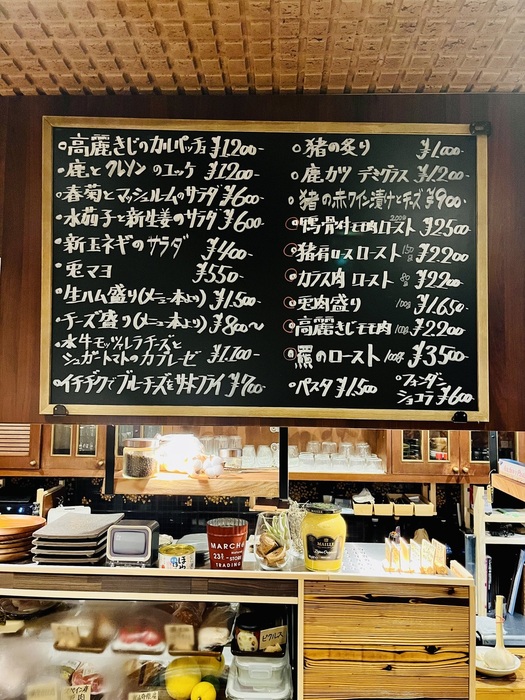 ・高麗きじのカルパッチョ ¥1200-
・鹿とクレソンのユッケ ¥1200-
・春菊とマッシュルームのサラダ ¥600-
・水茄子と新生姜のサラダ ¥600-
・新玉ネギのサラダ ¥400-
・兎マヨ ¥550-
・生ハム盛り(メニュー本より) ¥1,500-
・チーズ盛り(メニュー本より) ¥800〜
・水牛モッツァレラチーズと
シュガートマトのカプレーゼ ¥1,100-
・イチヂクとブルーチーズの サキフライ ¥700
○猪の炙り ¥1,000-
○鹿カツ デミグラス ¥1200-
○猪の赤ワイン漬けとチーズ ¥900-
○鴨骨付モモ肉ロースト 200g ¥2500
○猪肩ロースロースト 150g ¥2200
○カラス肉 ロースト 80g ¥2200
○兎肉盛り 100g ¥1,650-
○高麗きじモモ肉 100g ¥2,200
○羆のロースト 100g ¥3500
○パスタ ¥1,500
○フォンダン
ショコラ ¥600-
MARCHÉ
231
STORE
TRADING
MAILLE
ピクルス